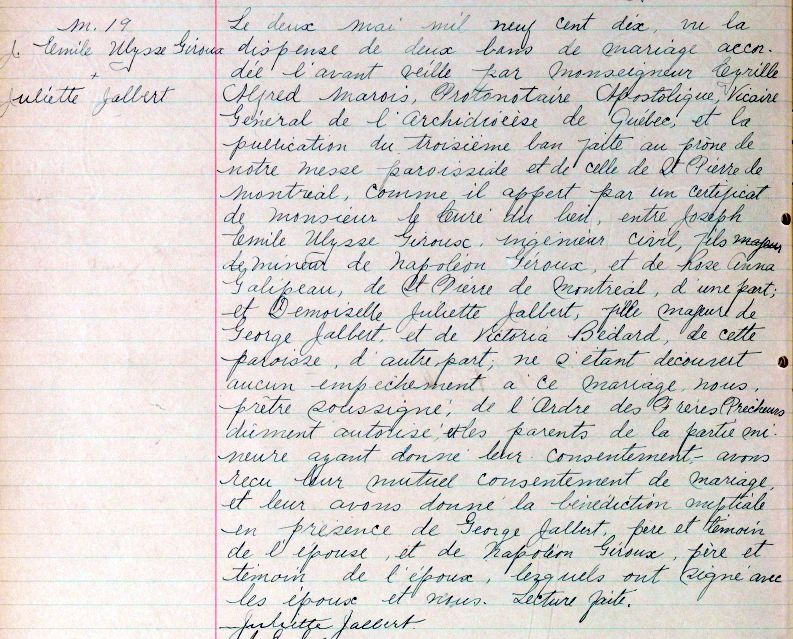 M. 19
J. Emile Ulysse Giroux
+
Juliette Jalbert
Le deux mai mil neuf cent dix, vu la
dispense de deux bans de mariage accor-
dée l'avant veille par Monseigneur Cyrille
Alfred Marois, Protonotaire Apostolique, Vicaire
Général de l'Archidiocèse de Québec, et la
publication du troisième ban faite au prône de
notre messe paroissiale et de celle de St Pierre de
Montréal, comme il appert par un certificat
de Monsieur le Curé du lieu, entre Joseph
Emile Ulysse Giroux, ingénieur civil, fils majeur
mineur de Napoléon Giroux, et de Rose Anna
Galipeau, de St Pierre de Montréal, d'une part;
et Demoiselle Juliette Jalbert, fille majeure de
George Jalbert, et de Victoria Bédard, de cette
paroisse, d'autre part; ne s'étant découvert
aucun empêchement à ce mariage, nous,
prêtre soussigné, de l'Ordre des Frères Prêcheurs
dûment autorisé, et les parents de la partie mi-
neure ayant donné leur consentement, avons
reçu leur mutuel consentement de mariage,
et leur avons donné la bénédiction nuptiale
en présence de George Jalbert, père et témoin
de l'épouse, et de Napoléon Giroux, père et
témoin de l'époux, lesquels ont signé avec
les époux et nous. Lecture faite.
Juliette Jalbert